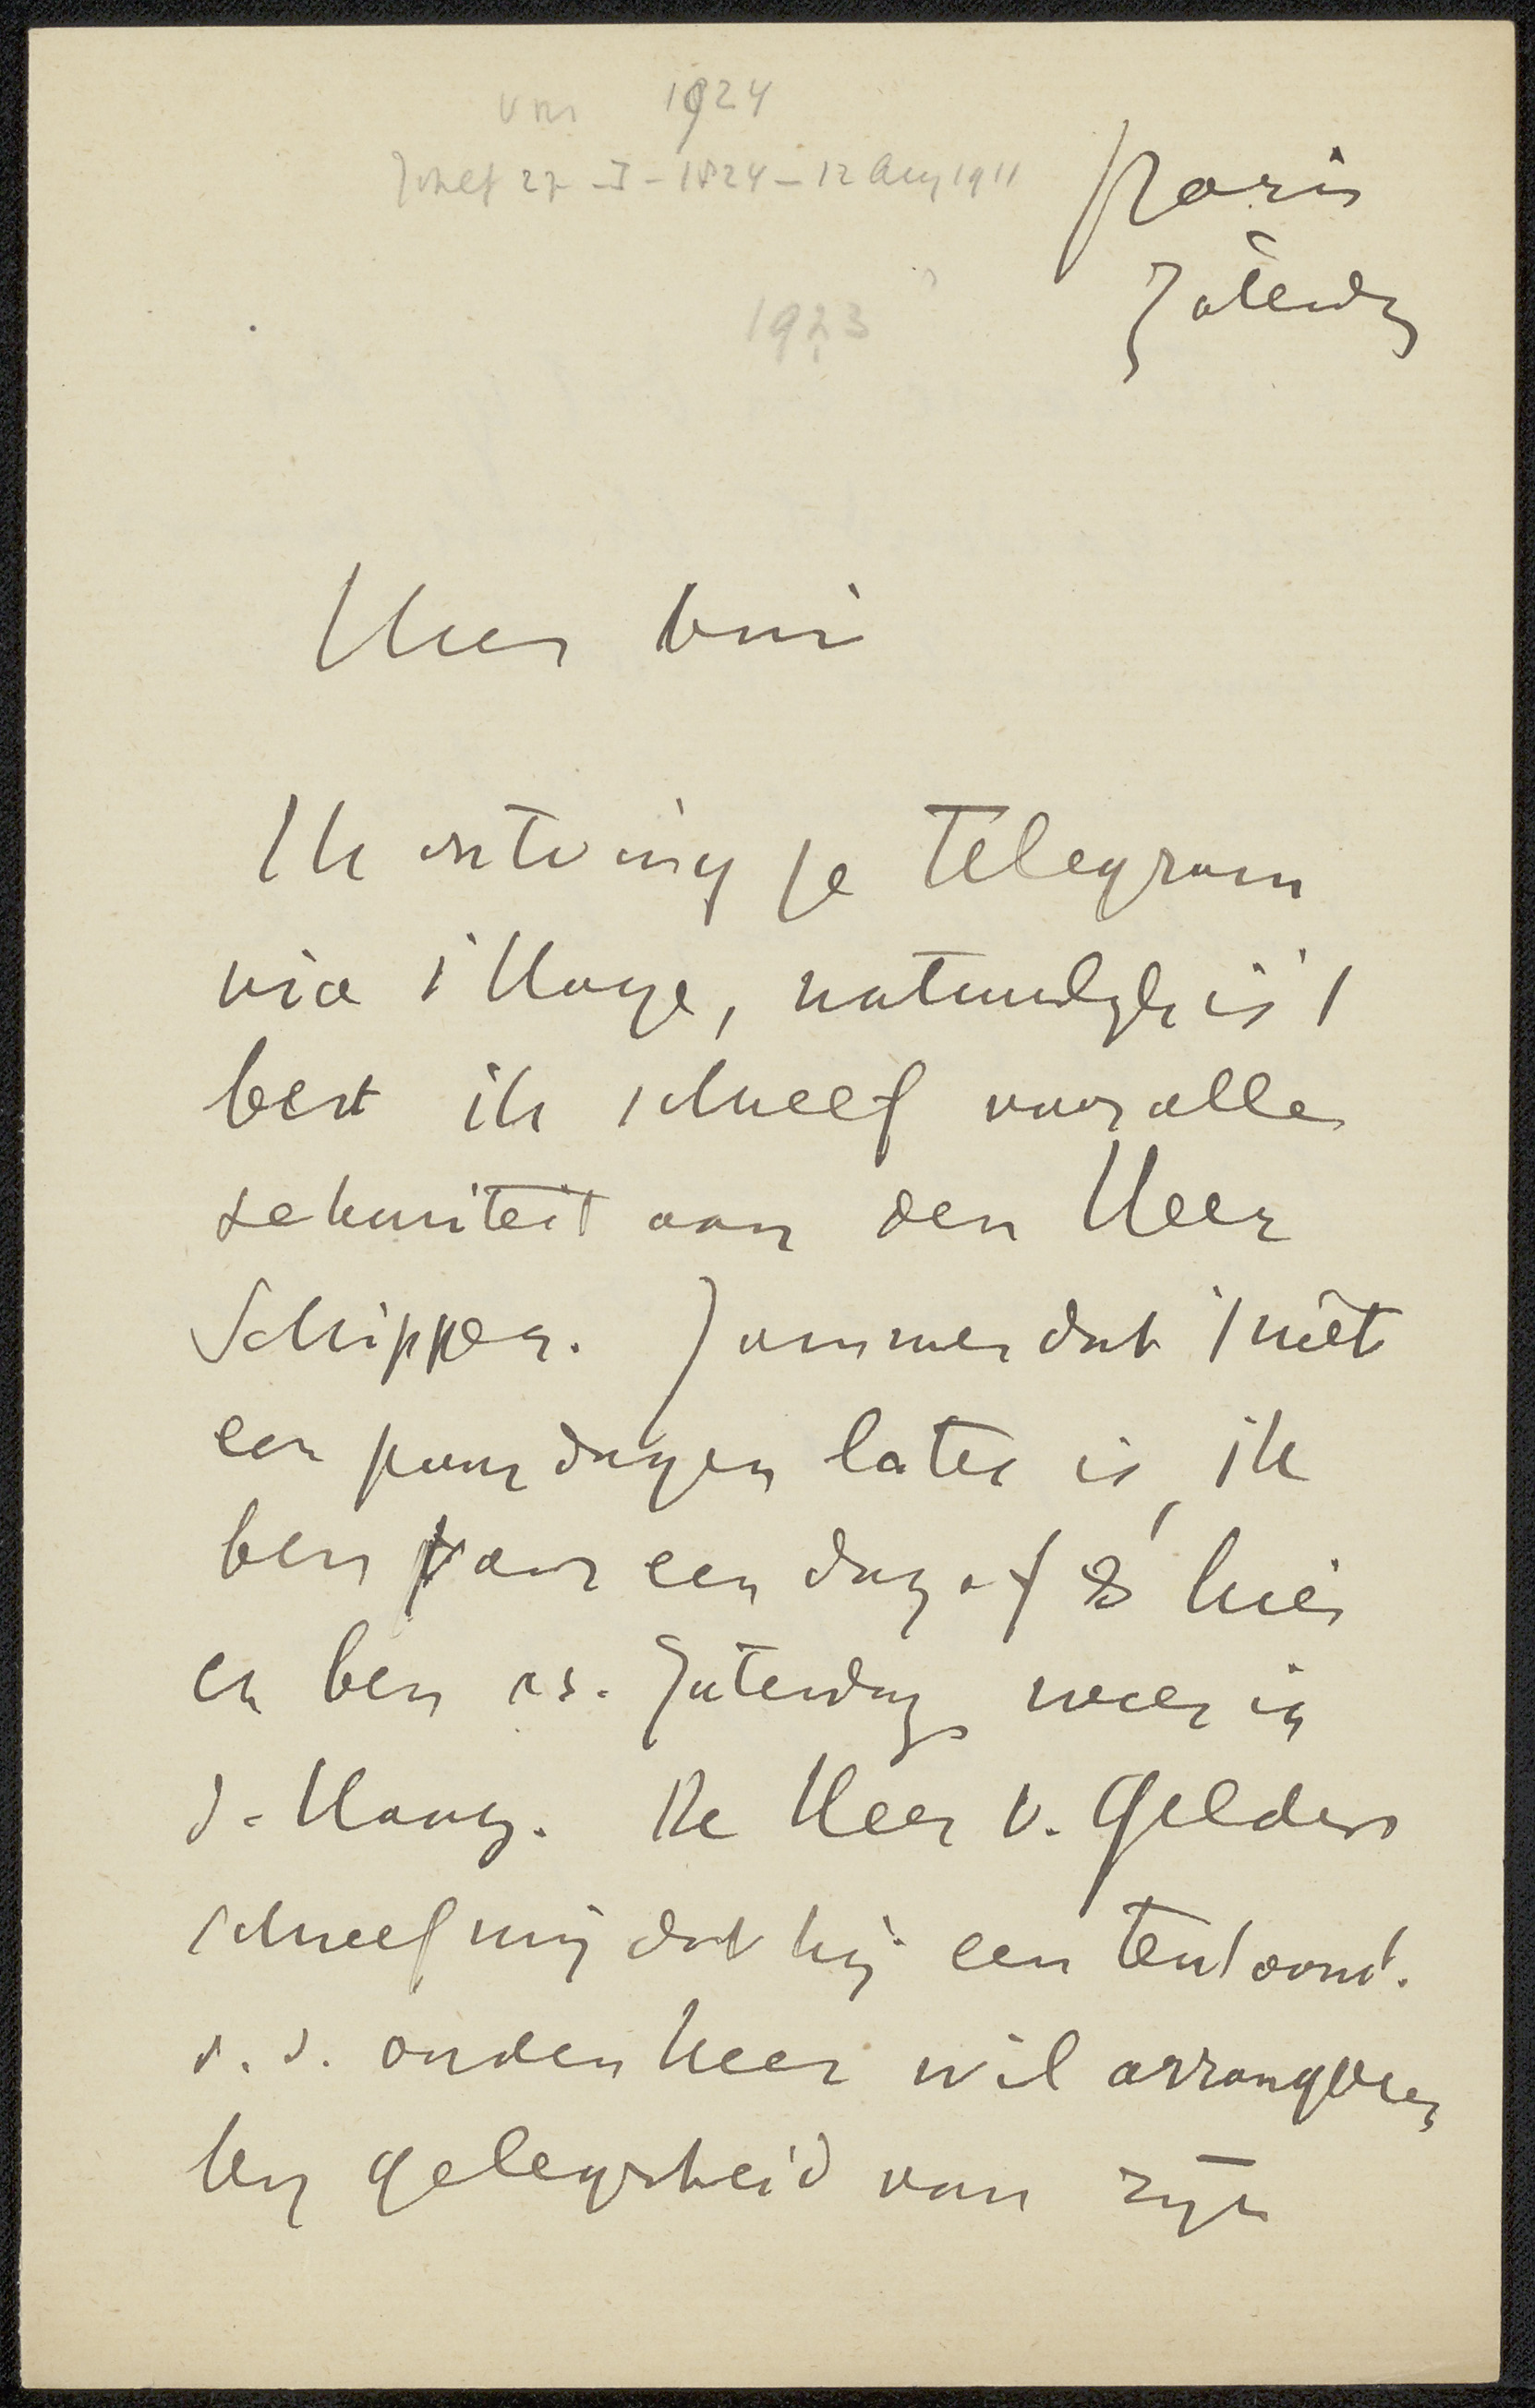 vm 1924
Jozef 27-I-1824-12 Aug 1911
Paris
Zaterdg
1923
Ik ontving je telegram
via 's Hage, natuurlijk is 't
best ik schreef voor alle
sekuriteit aan den Heer
Schipper. Jammer dat 't niet
een paar dagen later is, ik
ben voor een dag of 8 hier
en ben a.s. Zaterdag weer in
d. Haag. De Heer v. Gelder
schreef mij dat hij een tentoonst.
v. d. ouden heer wil arrangeren
bij gelegenheid van zijn